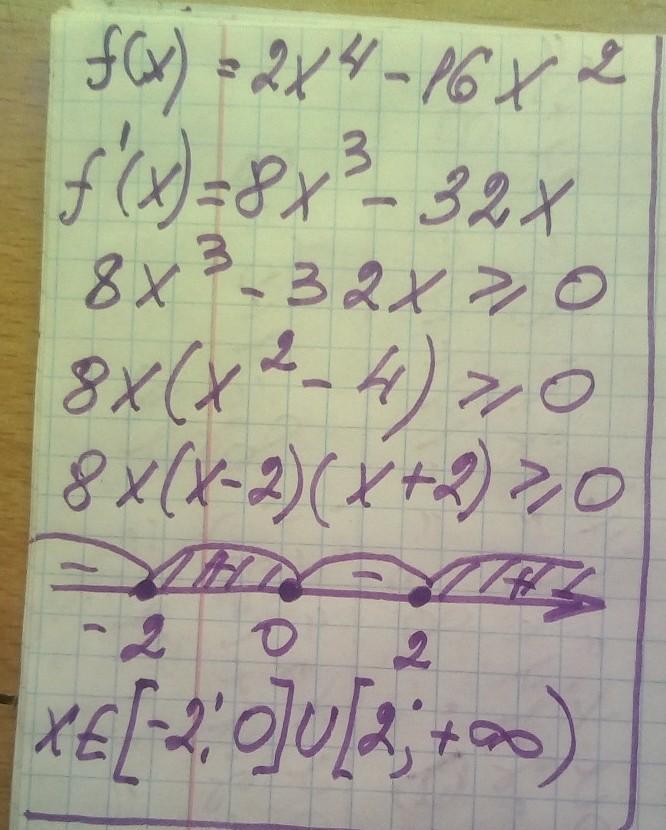 f(x) = 2x⁴ - 16x²
f'(x) = 8x³ - 32x
8x³ - 32x ⩾ 0
8x(x² - 4) ⩾ 0
8x(x-2)(x+2) ⩾ 0
- + - +
-2 0 2
x∈[-2; 0]∪[2; +∞)